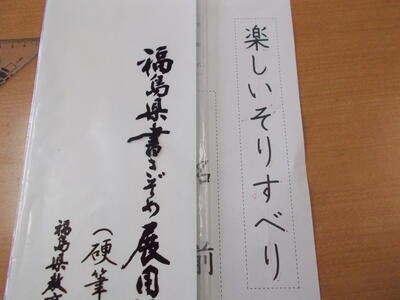 楽しいそりすべり
名前
福島県書きぞめ展用
(硬筆
福島県教